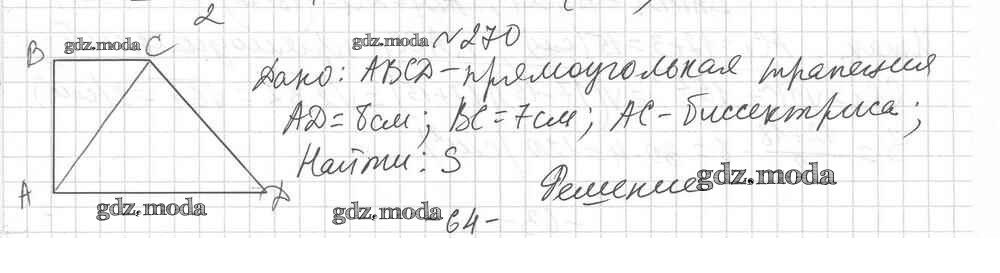 2
gdz.moda №270
B gdz.moda C
Дано: ABCD - прямоугольная трапеция
AD = 8см; BC = 7см; AC - биссектриса;
Найти: S
A D
Решение gdz.moda
gdz.moda gdz.moda
- 64 -